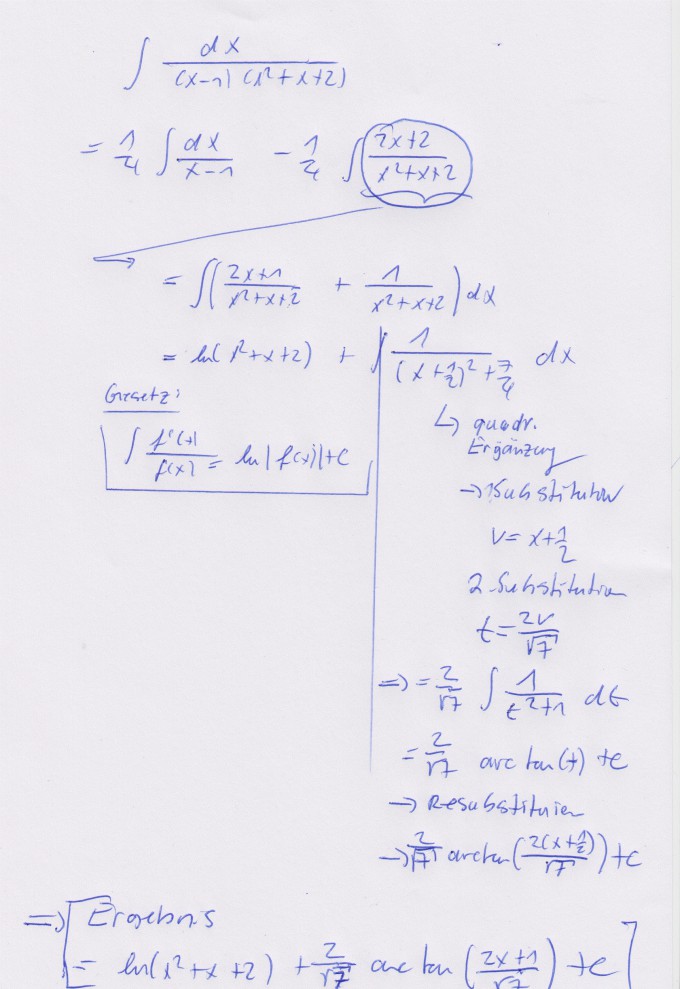 ∫ dx / ((x-1)(x²+x+2))
= 1/4 ∫ dx/(x-1) - 1/4 ∫ (2x+2)/(x²+x+2)
→ = ∫( (2x+1)/(x²+x+2) + 1/(x²+x+2) ) dx
= ln(x²+x+2) + ∫ 1/((x+1/2)²+7/4) dx
Gesetz:
∫ f'(x)/f(x) = ln|f(x)|+c
↳ quadr.
Ergänzung
→ 1 Substitution
v = x+1/2
2. Substitution
t = 2v/√7
=> = 2/√7 ∫ 1/(t²+1) dt
= 2/√7 arc tan(t) +c
→ Resubstituieren
→ 2/√7 arctan(2(x+1/2)/√7)+c
=> Ergebnis
= ln(x²+x+2) + 2/√7 arc tan ((2x+1)/√7) +c